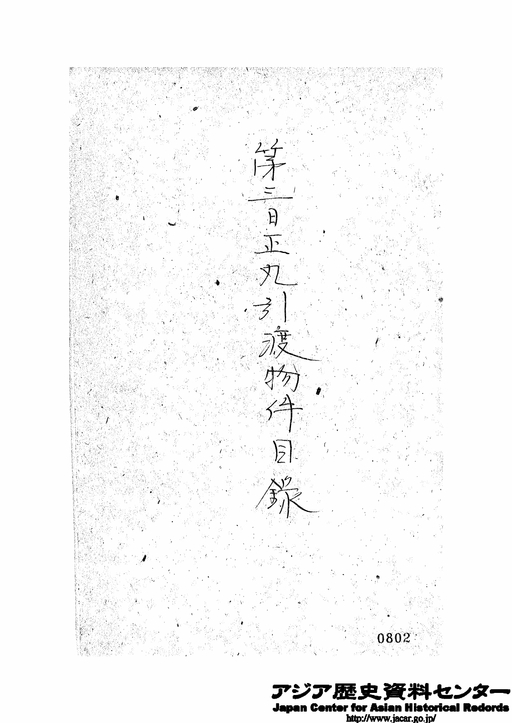 第三日正丸引渡物件目録
0802
アジア歴史資料センター
Japan Center for Asian Historical Records
http://www.jacar.go.jp/